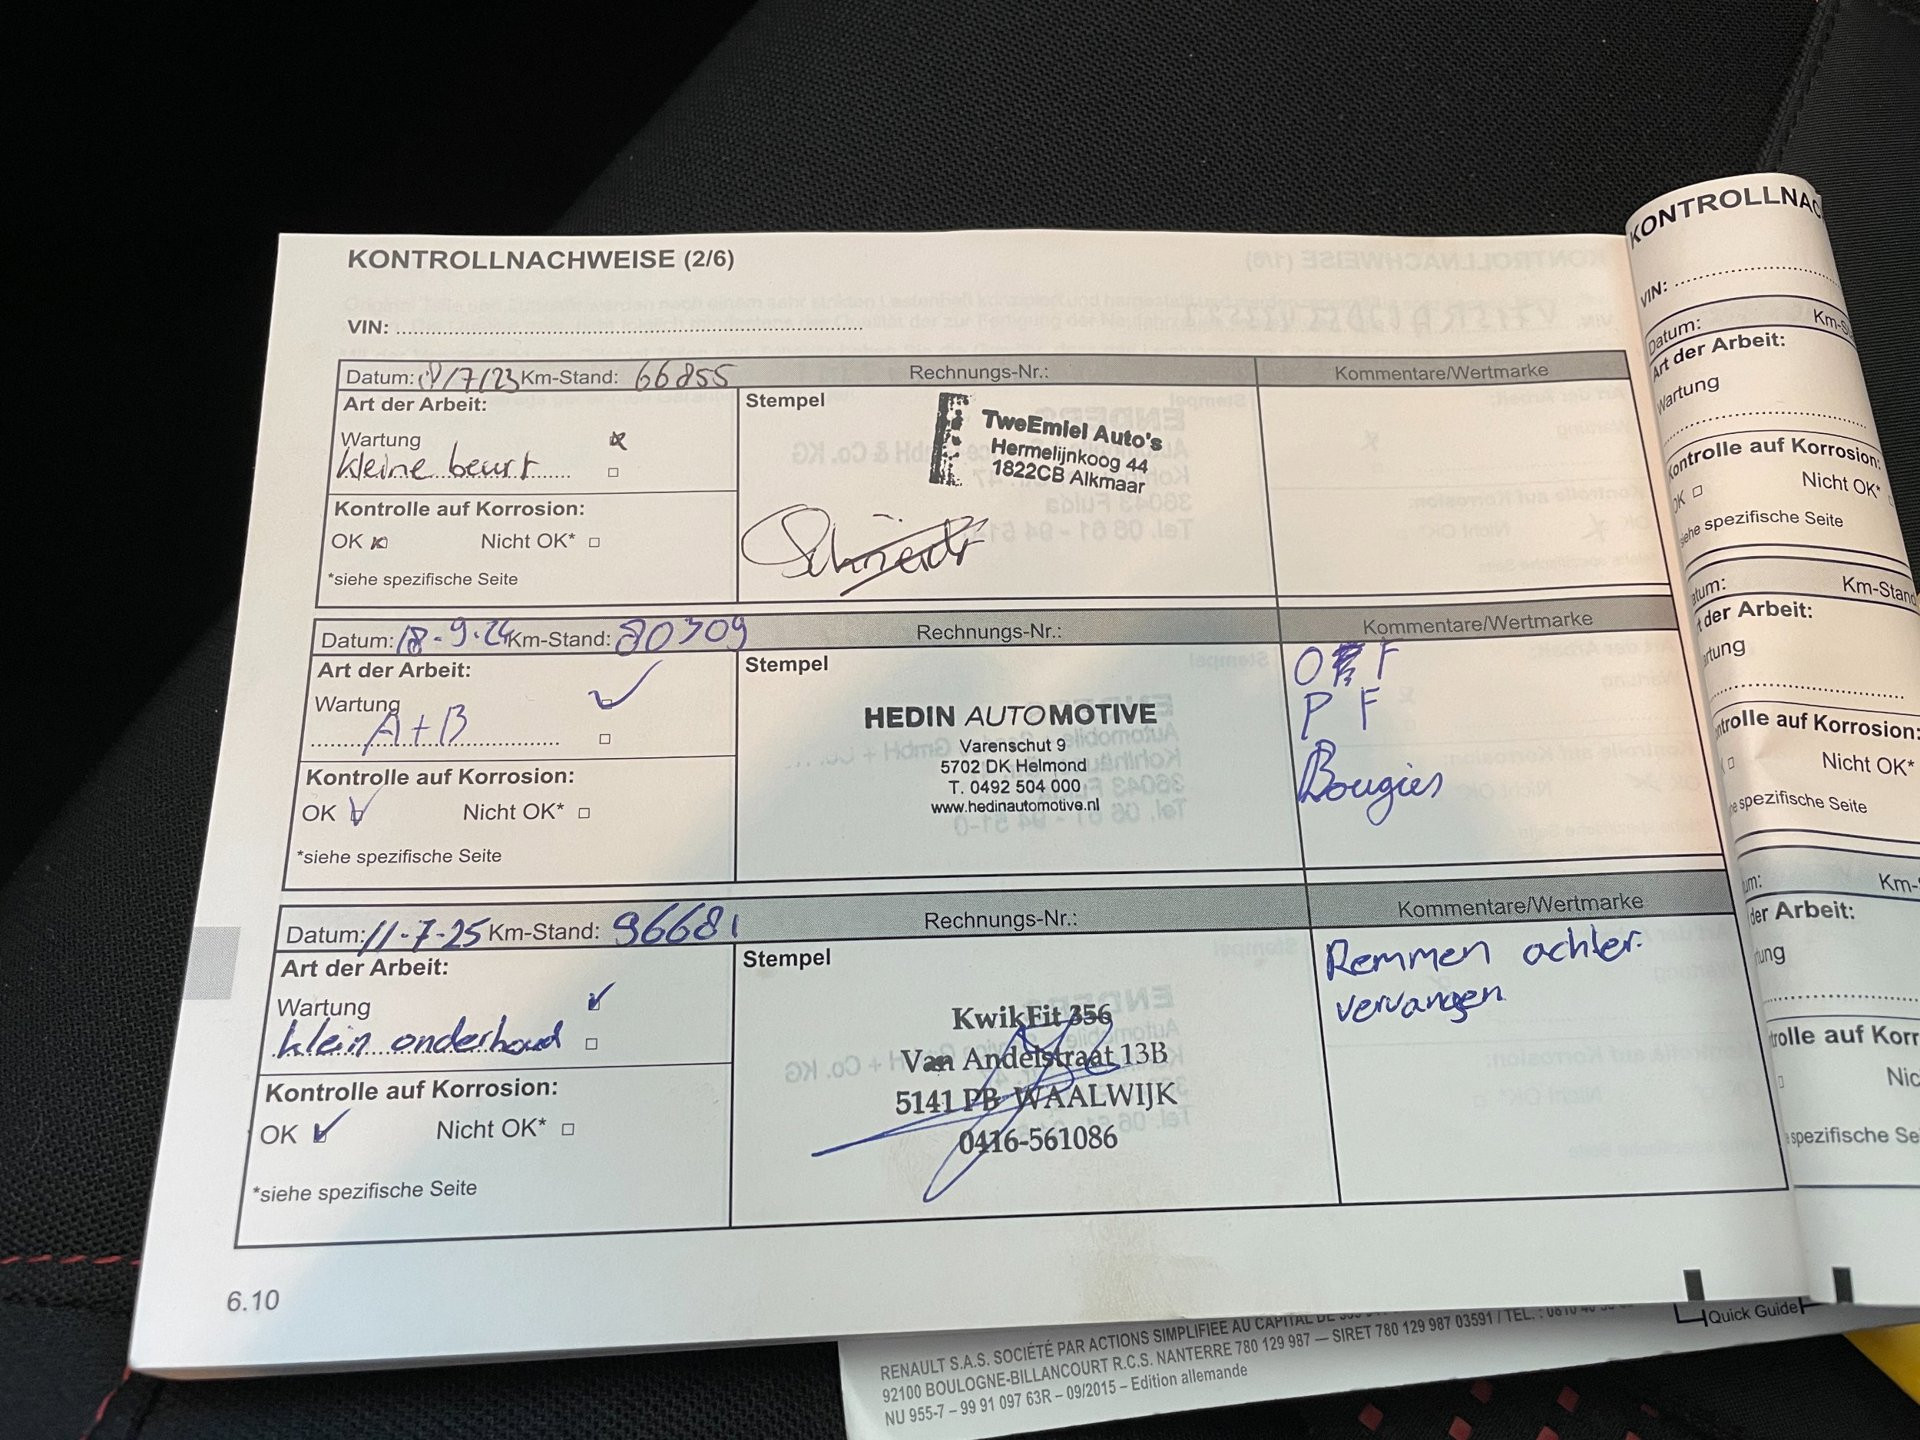 KONTROLLNACHWEISE (2/6)
VIN:
Datum: /7/23 Km-Stand: 66855 Rechnungs-Nr.: Kommentare/Wertmarke
Art der Arbeit:
Wartung
kleine beurt
Kontrolle auf Korrosion:
OK Nicht OK*
*siehe spezifische Seite
Stempel
TweEmiel Auto's
Hermelijnkoog 44
1822CB Alkmaar
Datum: 18-9-24 Km-Stand: 80309 Rechnungs-Nr.: Kommentare/Wertmarke
Art der Arbeit:
Wartung
A+B
Kontrolle auf Korrosion:
OK Nicht OK*
*siehe spezifische Seite
Stempel
HEDIN AUTOMOTIVE
Varenschut 9
5702 DK Helmond
T. 0492 504 000
www.hedinautomotive.nl
O F
P F
Bougies
Datum: 11-7-25 Km-Stand: 96681 Rechnungs-Nr.: Kommentare/Wertmarke
Art der Arbeit:
Wartung
klein onderhoud
Kontrolle auf Korrosion:
OK Nicht OK*
*siehe spezifische Seite
Stempel
KwikFit 356
Van Andelstraat 13B
5141 PB WAALWIJK
0416-561086
Remmen achter
vervangen
6.10
KONTROLLNAC
VIN:
Datum: Km-S
Art der Arbeit:
Wartung
Kontrolle auf Korrosion:
OK Nicht OK*
siehe spezifische Seite
tum: Km-Stand
der Arbeit:
rtung
ntrolle auf Korrosion:
Nicht OK*
e spezifische Seite
um: Km-
der Arbeit:
tung
trolle auf Korr
Nic
spezifische Se
RENAULT S.A.S. SOCIÉTÉ PAR ACTIONS SIMPLIFIEE AU CAPITAL DE
92100 BOULOGNE-BILLANCOURT R.C.S. NANTERRE 780 129 987 — SIRET 780 129 987 03591 / TEL. :
NU 955-7 – 99 91 097 63R – 09/2015 – Edition allemande
Quick Guide